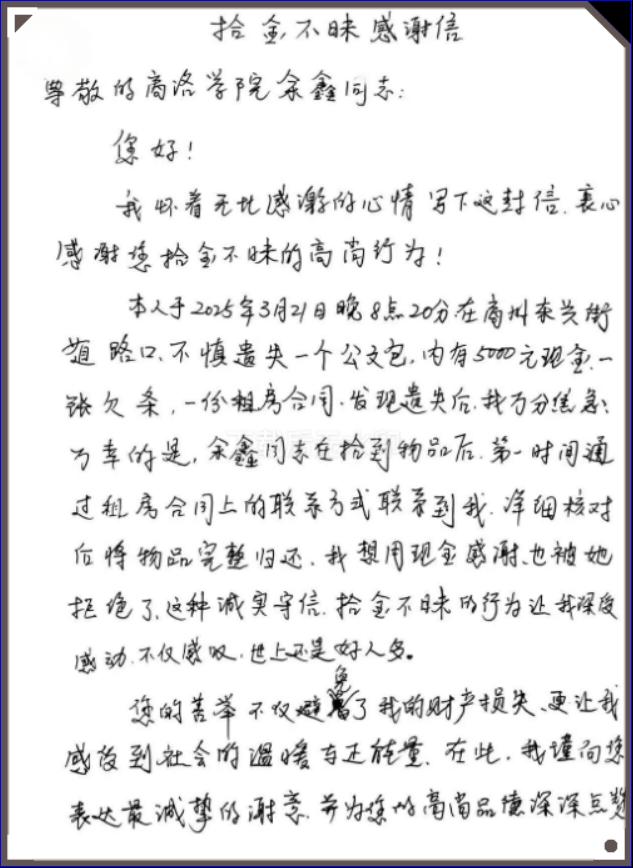 拾金不昧感谢信
尊敬的商洛学院余鑫同志:
您好!
我怀着无比感激的心情写下这封信,衷心
感谢您拾金不昧的高尚行为!
本人于2025年3月21日晚8点20分在商州东关街
道路口,不慎遗失一个公文包,内有5000元现金,一
张欠条,一份租房合同,发现遗失后,我万分焦急;
万幸的是,余鑫同志在拾到物品后,第一时间通
过租房合同上的联系方式联系到我,详细核对
后将物品完整归还,我想用现金感谢,也被她
拒绝了,这种诚实守信、拾金不昧的行为让我深受
感动,不仅感叹,世上还是好人多。
您的善举不仅避免了我的财产损失,更让我
感受到社会的温暖与正能量,在此,我谨向您
表达最诚挚的谢意,并为您的高尚品德深深点赞